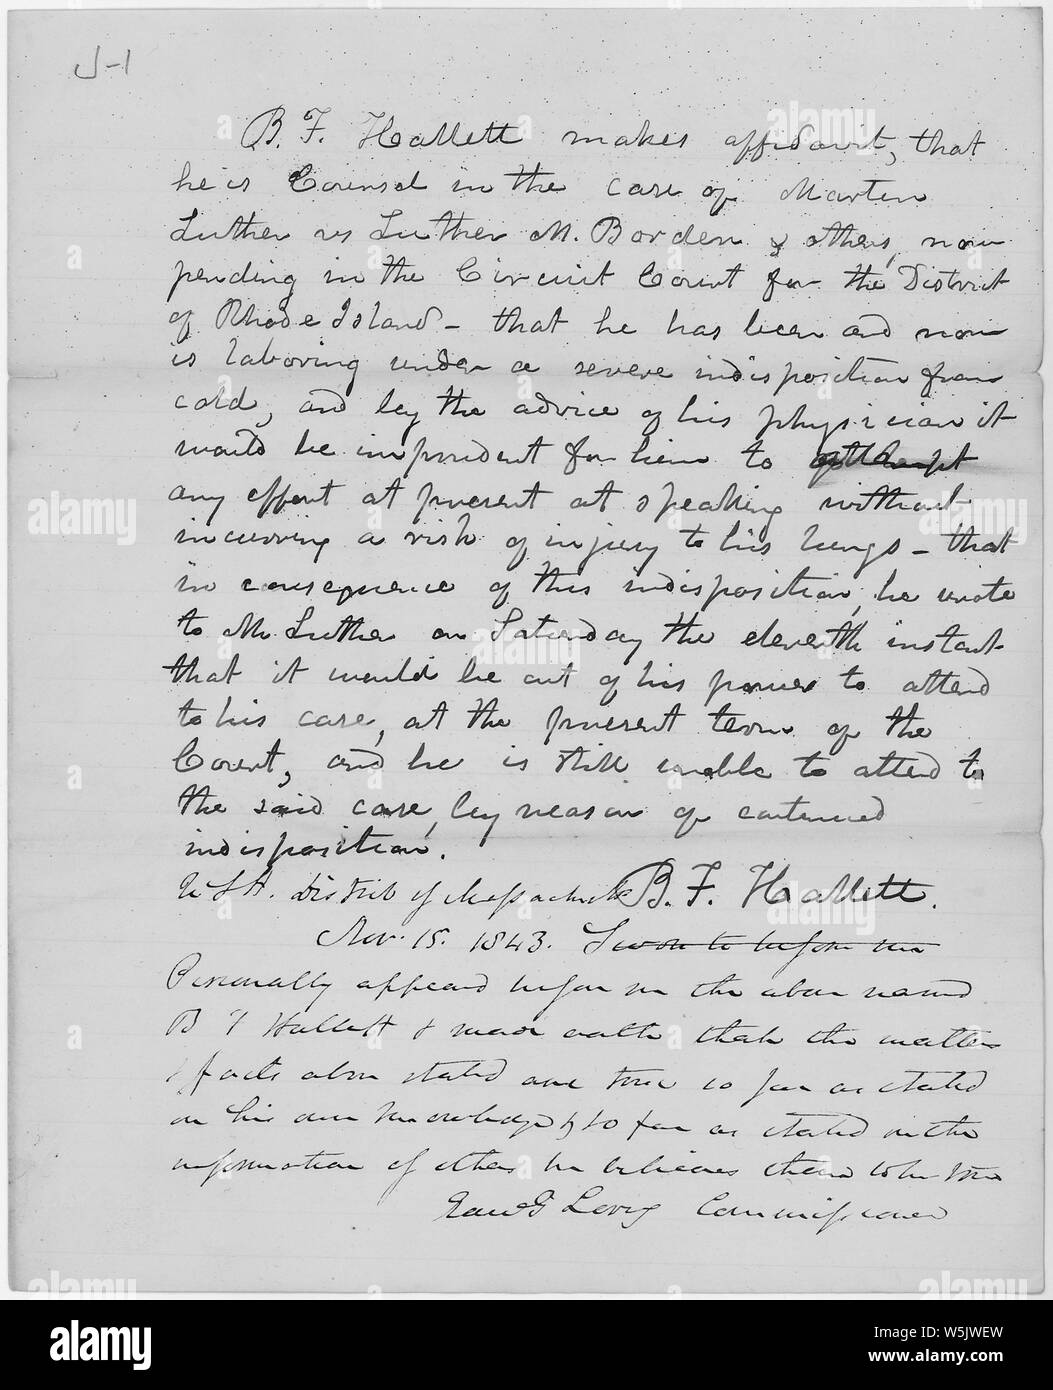 J-1
B. F. Hallett makes affidavit, that
he is Counsel in the case of Martin
Luther vs Luther M. Borden & others, now
pending in the Circuit Court for the District
of Rhode Island - that he has been and now
is laboring under a severe indisposition from
cold, and by the advice of his physician it
would be imprudent for him to attempt
any effort at present at speaking without
incurring a risk of injury to his lungs - that
in consequence of this indisposition, he wrote
to Mr Luther on Saturday the eleventh instant
that it would be out of his power to attend
to his case, at the present term of the
Court, and he is still unable to attend to
the said case, by reason of continued
indisposition.
B. F. Hallett.
District of Massachusetts
Nov. 15. 1843. Sworn to before me
Personally appeared before me the above named
B F Hallett & made oath that the matters
& facts above stated are true so far as stated
on his own knowledge & so far as stated on the
information of others he believes them to be true
Loring Commissioner
alamy
Image ID: W5JWEW
www.alamy.com